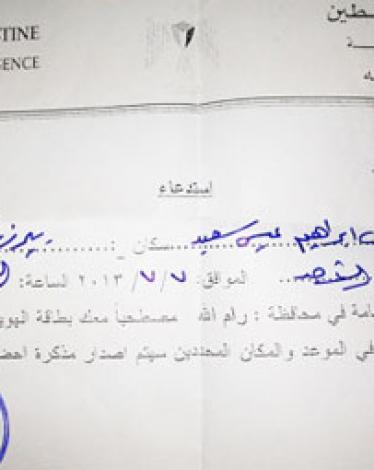 ـسطين
STINE
ـة
GENCE
ـه
استدعاء
ابراهيم عيسى سعيد سكان : بيرزيـ
الموافق: ٧/ ٧/ ٢٠١٣ الساعة:
ـامة في محافظة : رام الله مصطحباً معك بطاقة الهويـ
في الموعد والمكان المحددين سيتم اصدار مذكرة احضـ